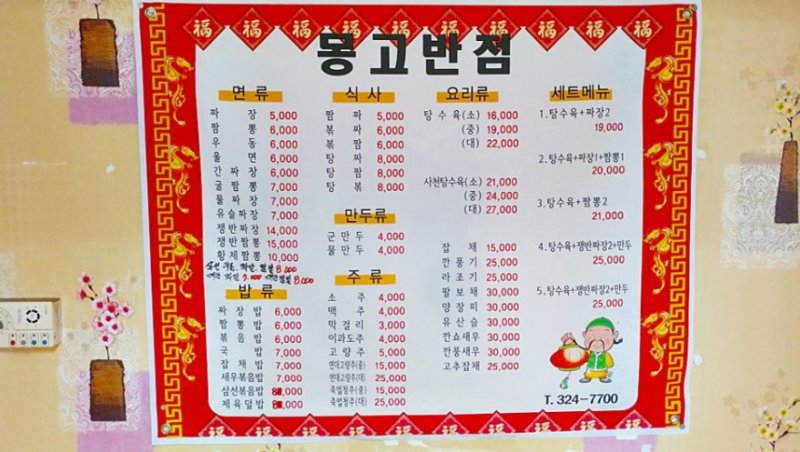 福 福 福 福 福 福 福 福 福 福
몽고반점
면 류
짜 장 5,000
짬 뽕 6,000
우 동 6,000
울 면 6,000
간 짜 장 6,000
굴 짬 뽕 7,000
물 짜 장 7,000
유슬짜장 7,000
쟁반짜장 14,000
쟁반짬뽕 15,000
황제짬뽕 10,000
삼선 8,000
7,000 8,000
밥 류
짜 장 밥 6,000
짬 뽕 밥 6,000
볶 음 밥 6,000
국 밥 7,000
잡 채 밥 7,000
새우볶음밥 7,000
삼선볶음밥 8,000
제 육 덮 밥 8,000
식 사
짬 짜 5,000
볶 짜 6,000
볶 짬 6,000
탕 짜 8,000
탕 짬 8,000
탕 볶 8,000
만두류
군 만 두 4,000
물 만 두 4,000
주 류
소 주 4,000
맥 주 4,000
막 걸 리 3,000
이과도주 4,000
고 량 주 5,000
연태고량주(중) 15,000
연태고량주(대) 25,000
죽엽청주(중) 15,000
죽엽청주(대) 25,000
요리류
탕 수 육(소) 16,000
(중) 19,000
(대) 22,000
사천탕수육(소) 21,000
(중) 24,000
(대) 27,000
잡 채 15,000
깐 풍 기 25,000
라 조 기 25,000
팔 보 채 30,000
양 장 피 30,000
유 산 슬 30,000
깐쇼새우 30,000
깐풍새우 30,000
고추잡채 25,000
세트메뉴
1. 탕수육+짜장2
19,000
2. 탕수육+짜장1+짬뽕1
20,000
3. 탕수육+짬뽕2
21,000
4. 탕수육+쟁반짜장2+만두
25,000
5. 탕수육+쟁반짬뽕2+만두
25,000
T. 324-7700
福 福 福 福 福 福 福 福 福 福